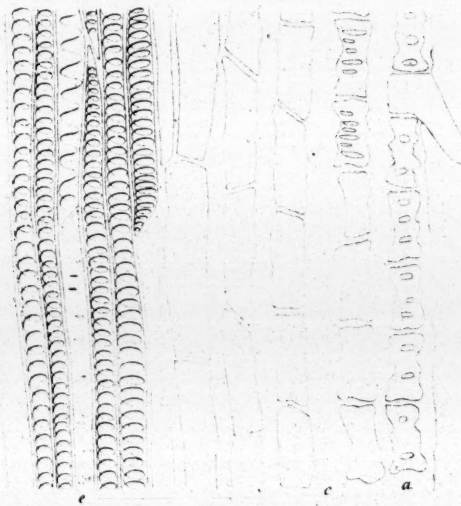 e c a